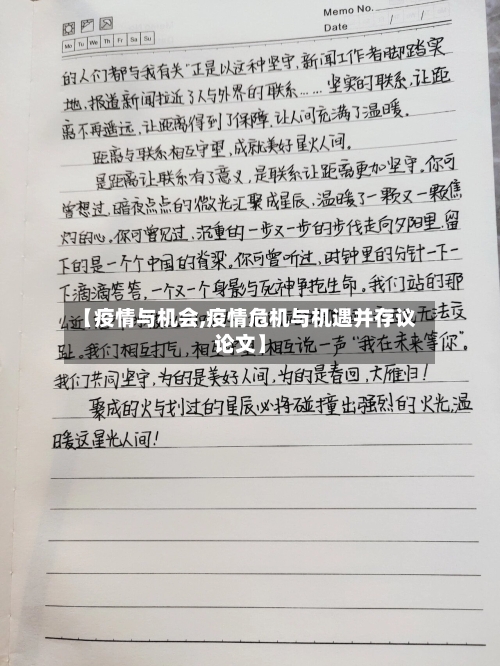 Memo No.
Date / /
Mo Tu We Th Fr Sa Su
的人们都与我有关"正是以这种坚守,新闻工作者脚踏实
地,报道新闻拉近了人与外界的联系……坚实的联系,让距
离不再遥远,让距离得到了保障,让人间充满了温暖。
距离与联系相互守望,成就美好星火人间。
是距离让联系有了意义,是联系让距离更加坚守。你可
曾想过,暗夜点点的微光汇聚成星辰,温暖了一颗又一颗焦
灼的心。你可曾见过,沉重的一步又一步的步伐走向夕阳里,留
下的是一个个中国的脊梁。你可曾听过,时钟里的分针一下一
下滴滴答答,一个又一个身影与死神争抢生命。我们站的那
么近
无法交
【疫情与机会,疫情危机与机遇并存议
论文】
耻。我们相互打气,相互 相互说一声"我在未来等你"。
我们共同坚守,为的是美好人间,为的是春回,大雁归!
聚成的火与划过的星辰必将碰撞出强烈的火光,温
暖这星光人间!